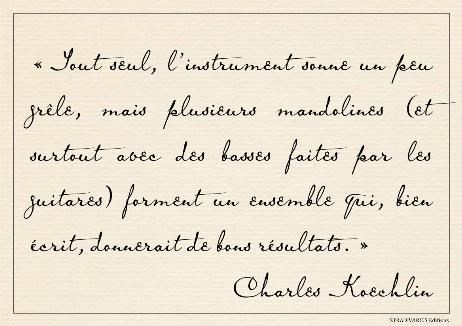 « Tout seul, l'instrument sonne un peu
grêle, mais plusieurs mandolines (et
surtout avec des basses faites par les
guitares) forment un ensemble qui, bien
écrit, donnerait de bons résultats. »
Charles Koechlin
STRADIVARIUS Editions